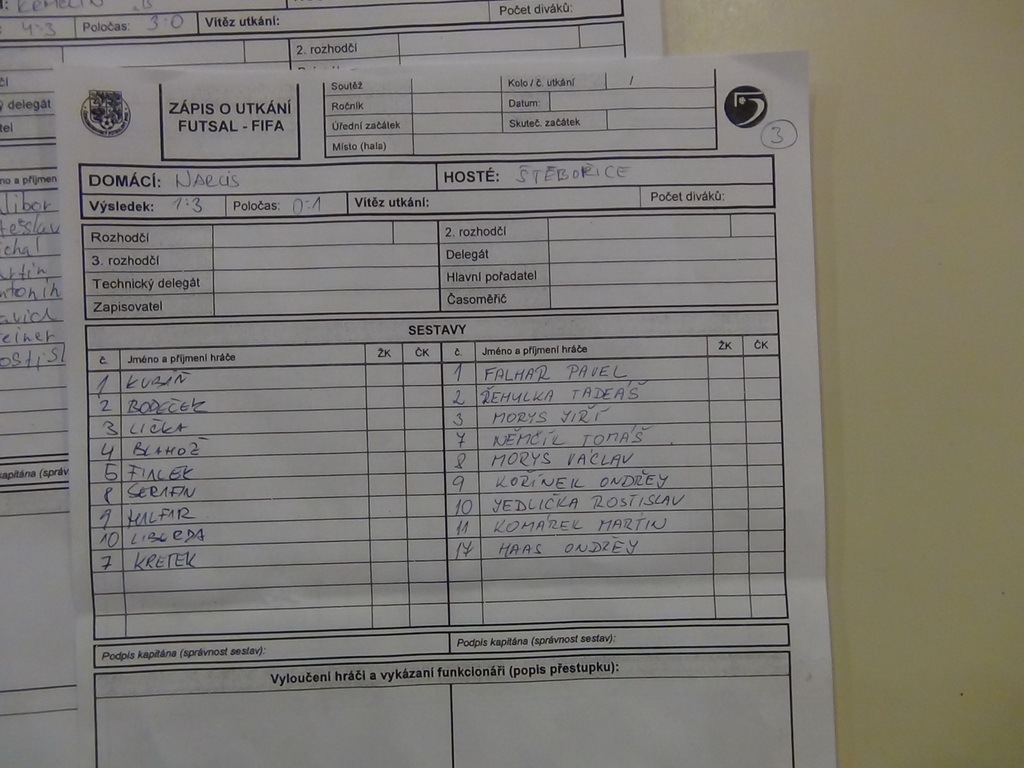 4:3 Poločas: 3:0 Vítěz utkání: Počet diváků:
2. rozhodčí
delegát
ZÁPIS O UTKÁNÍ
FUTSAL - FIFA
Soutěž Kolo / č. utkání /
Ročník Datum:
Úřední začátek Skuteč. začátek
Místo (hala)
3
DOMÁCÍ: NARCIS HOSTÉ: ŠTĚBOŘICE
Výsledek: 1:3 Poločas: 0:1 Vítěz utkání: Počet diváků:
Rozhodčí 2. rozhodčí
3. rozhodčí Delegát
Technický delegát Hlavní pořadatel
Zapisovatel Časoměřič
SESTAVY
č. Jméno a příjmení hráče ŽK ČK č. Jméno a příjmení hráče ŽK ČK
1 KUBÁŇ 1 FALHAR PAVEL
2 BODEČEK 2 ŘEHULKA TADEÁŠ
3 LIČKA 3 MORYS JIŘÍ
4 BLAHOŽ 7 NĚMČÍK TOMÁŠ
5 FIALEK 8 MORYS VÁCLAV
8 SERAFIN 9 KOŘÍNEK ONDŘEJ
9 HALFAR 10 JEDLIČKA ROSTISLAV
10 LIBERDA 11 KOMÁREK MARTIN
7 KRETEK 17 HAAS ONDŘEJ
Podpis kapitána (správnost sestav): Podpis kapitána (správnost sestav):
Vyloučení hráči a vykázaní funkcionáři (popis přestupku):